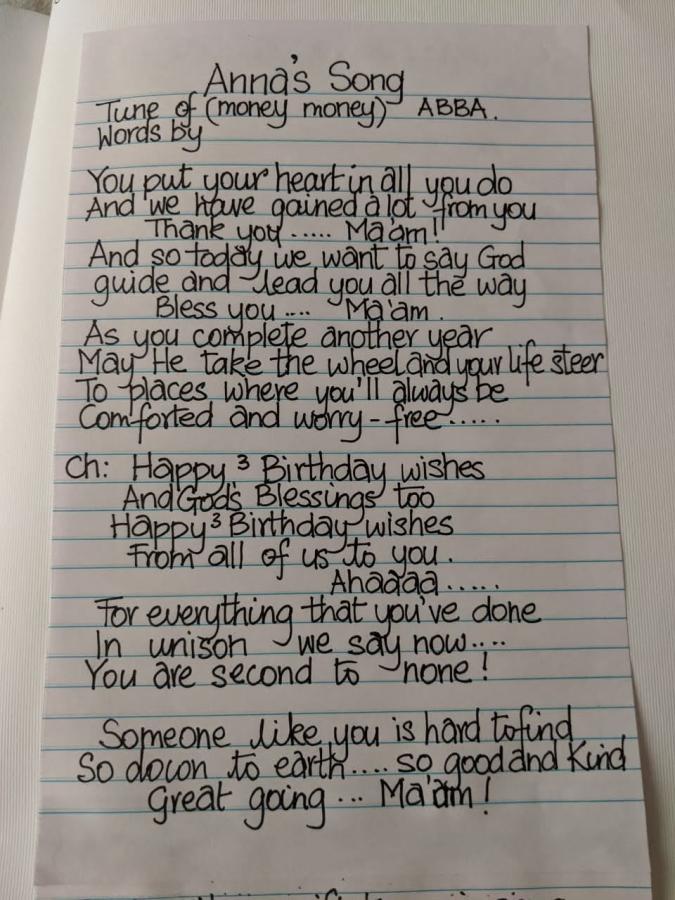 Anna's Song
Tune of (money money) ABBA.
Words by
You put your heart in all you do
And we have gained a lot from you
Thank you ..... Ma'am!
And so today we want to say God
guide and lead you all the way
Bless you .... Ma'am.
As you complete another year
May He take the wheel and your life steer
To places where you'll always be
Comforted and worry-free.....
Ch: Happy ³ Birthday wishes
And God's Blessings too
Happy³ Birthday wishes
From all of us to you.
Ahaaaa.....
For everything that you've done
In unison we say now....
You are second to none!
Someone like you is hard to find
So down to earth.... so good and kind
Great going ... Ma'am!